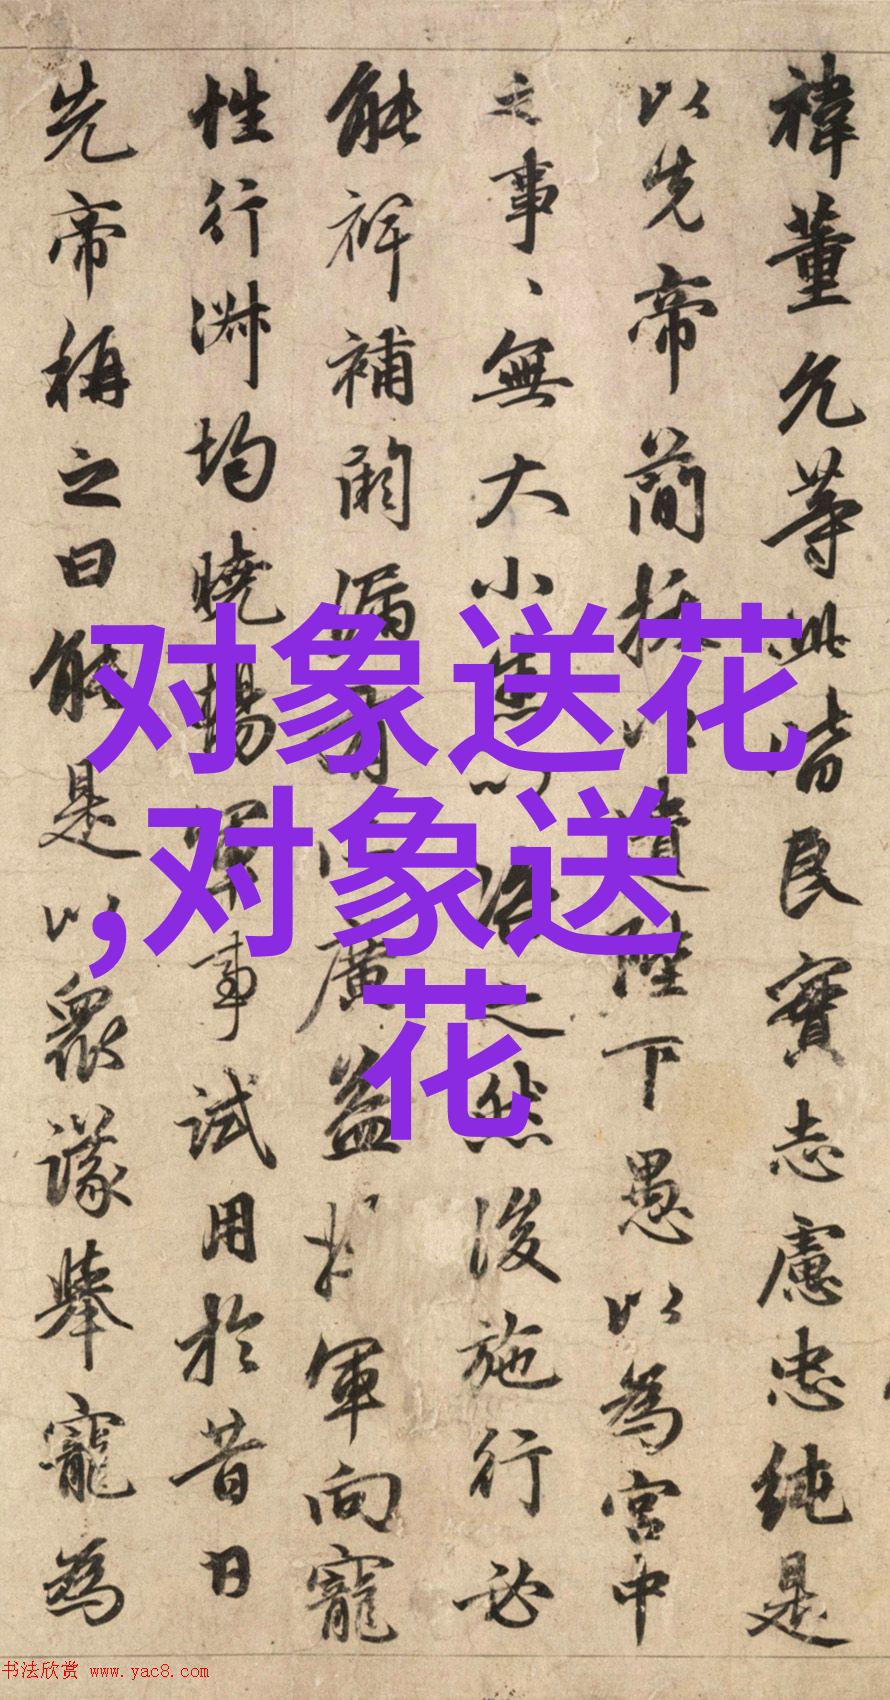 禕董允等此皆良實志慮忠純是
以先帝簡拔以遺陛下愚以為宮中
之事、無大小悉以咨之然後施行必
能裨補闕漏有所廣益將軍向寵
性行淑均曉暢軍事試用於昔日
先帝稱之曰能是以衆議舉寵為
对象送花
,对象送
花
书法欣赏 www.yac8.com